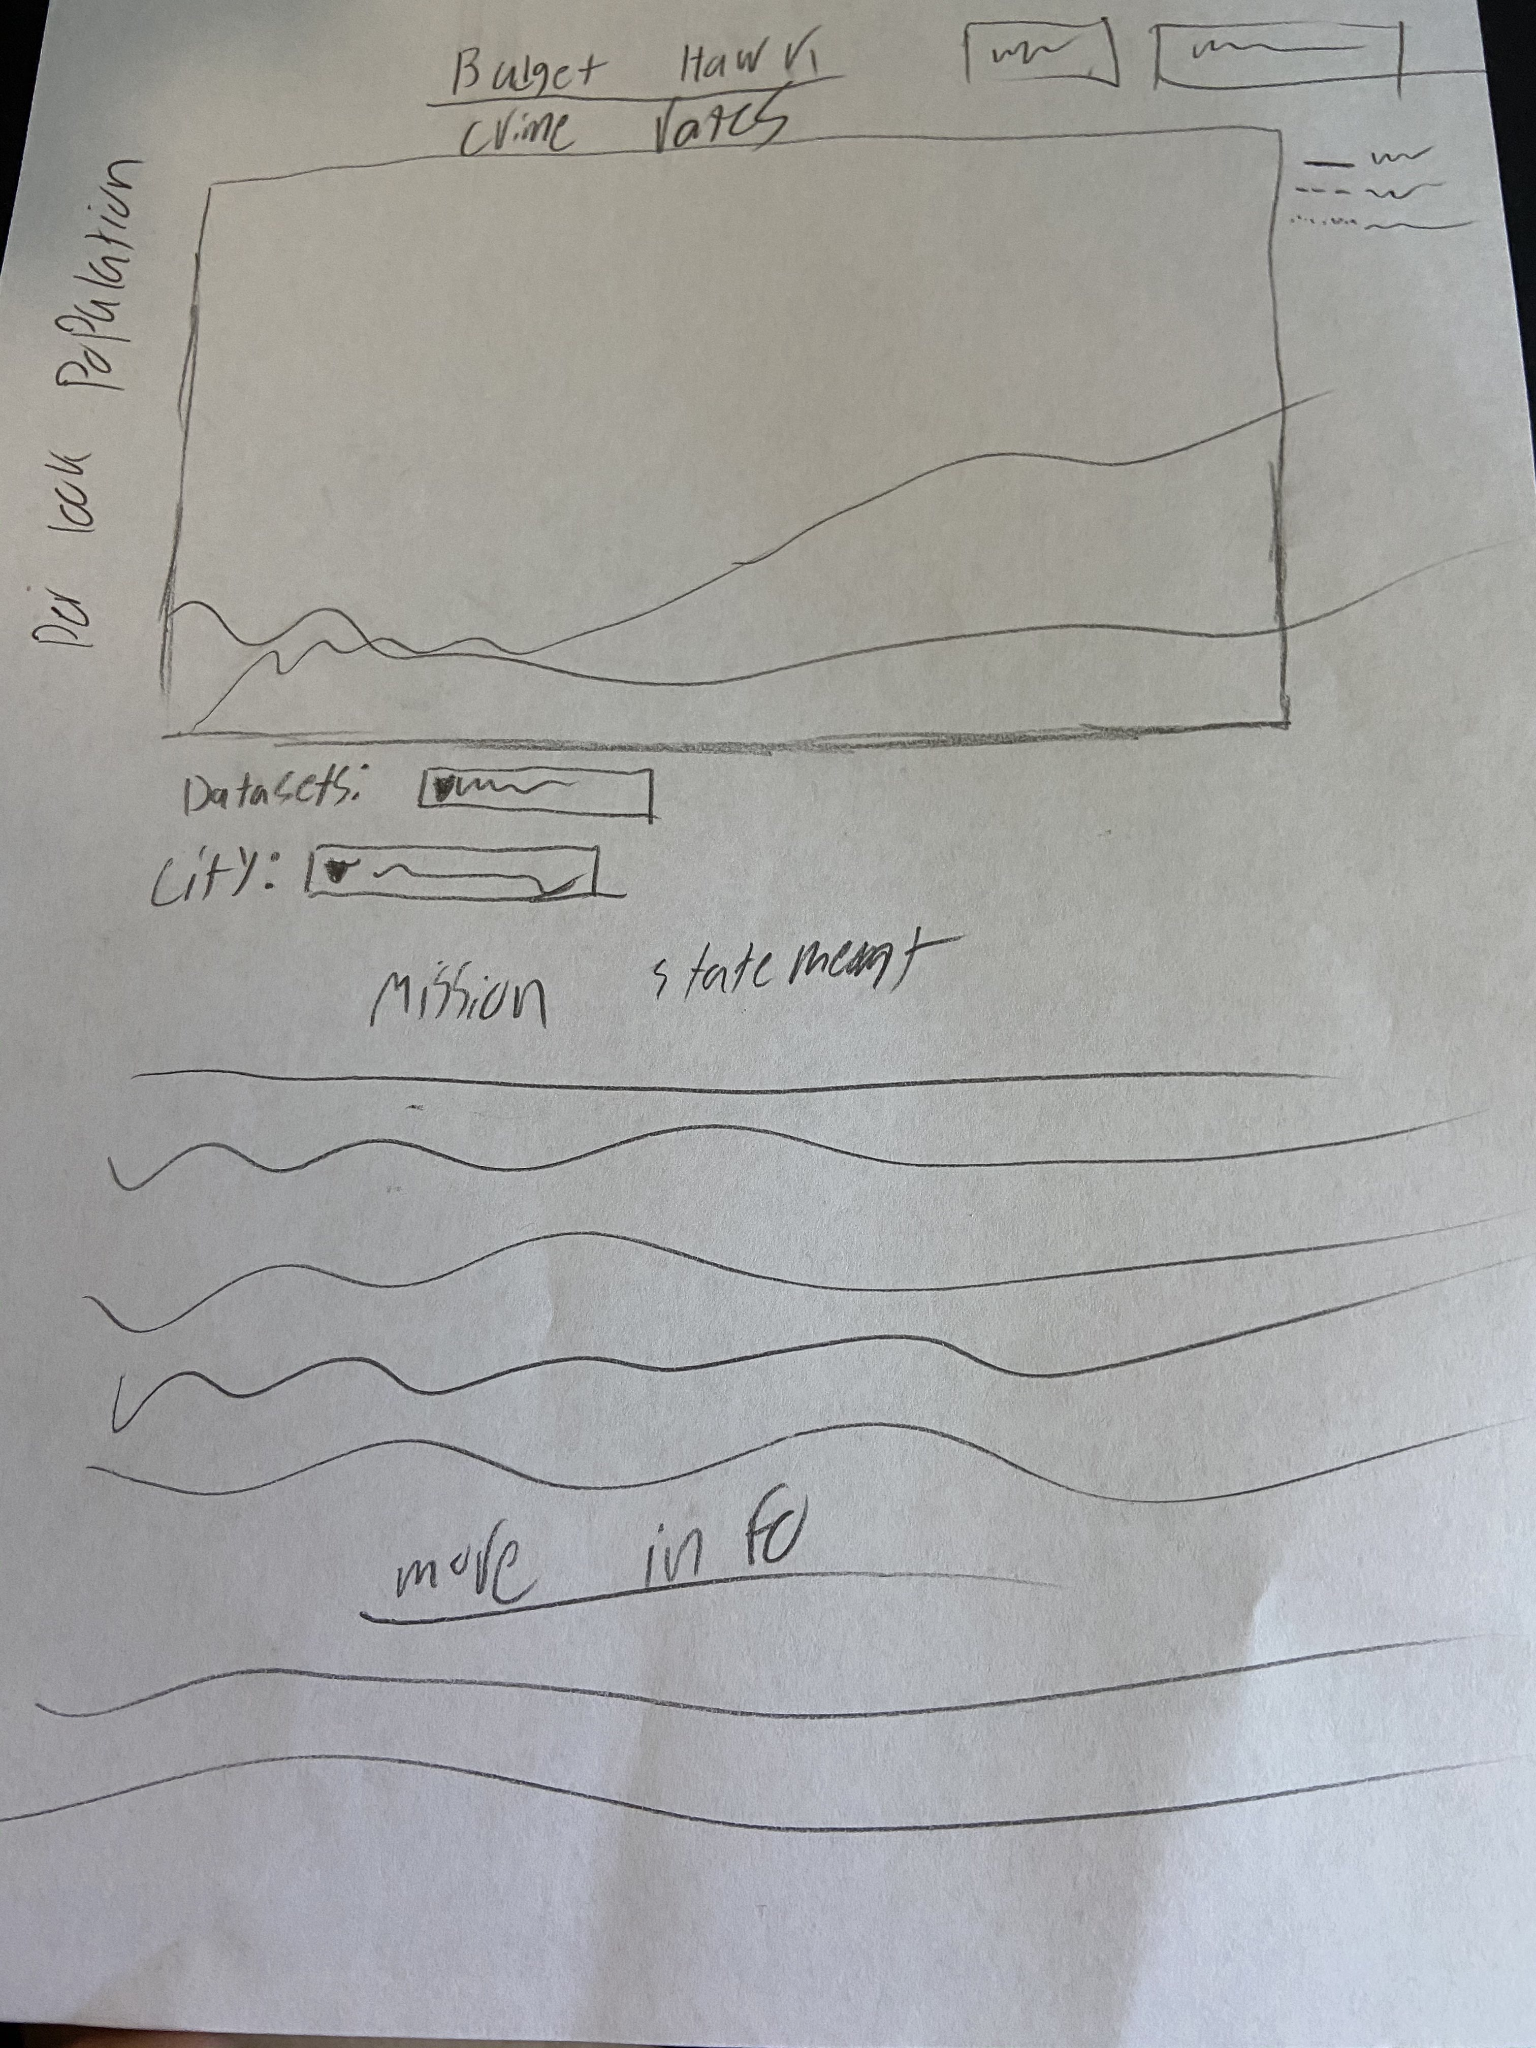 Budget Hawk
Crime rates
Per 100k Population
Datasets:
City:
Mission statement
more info